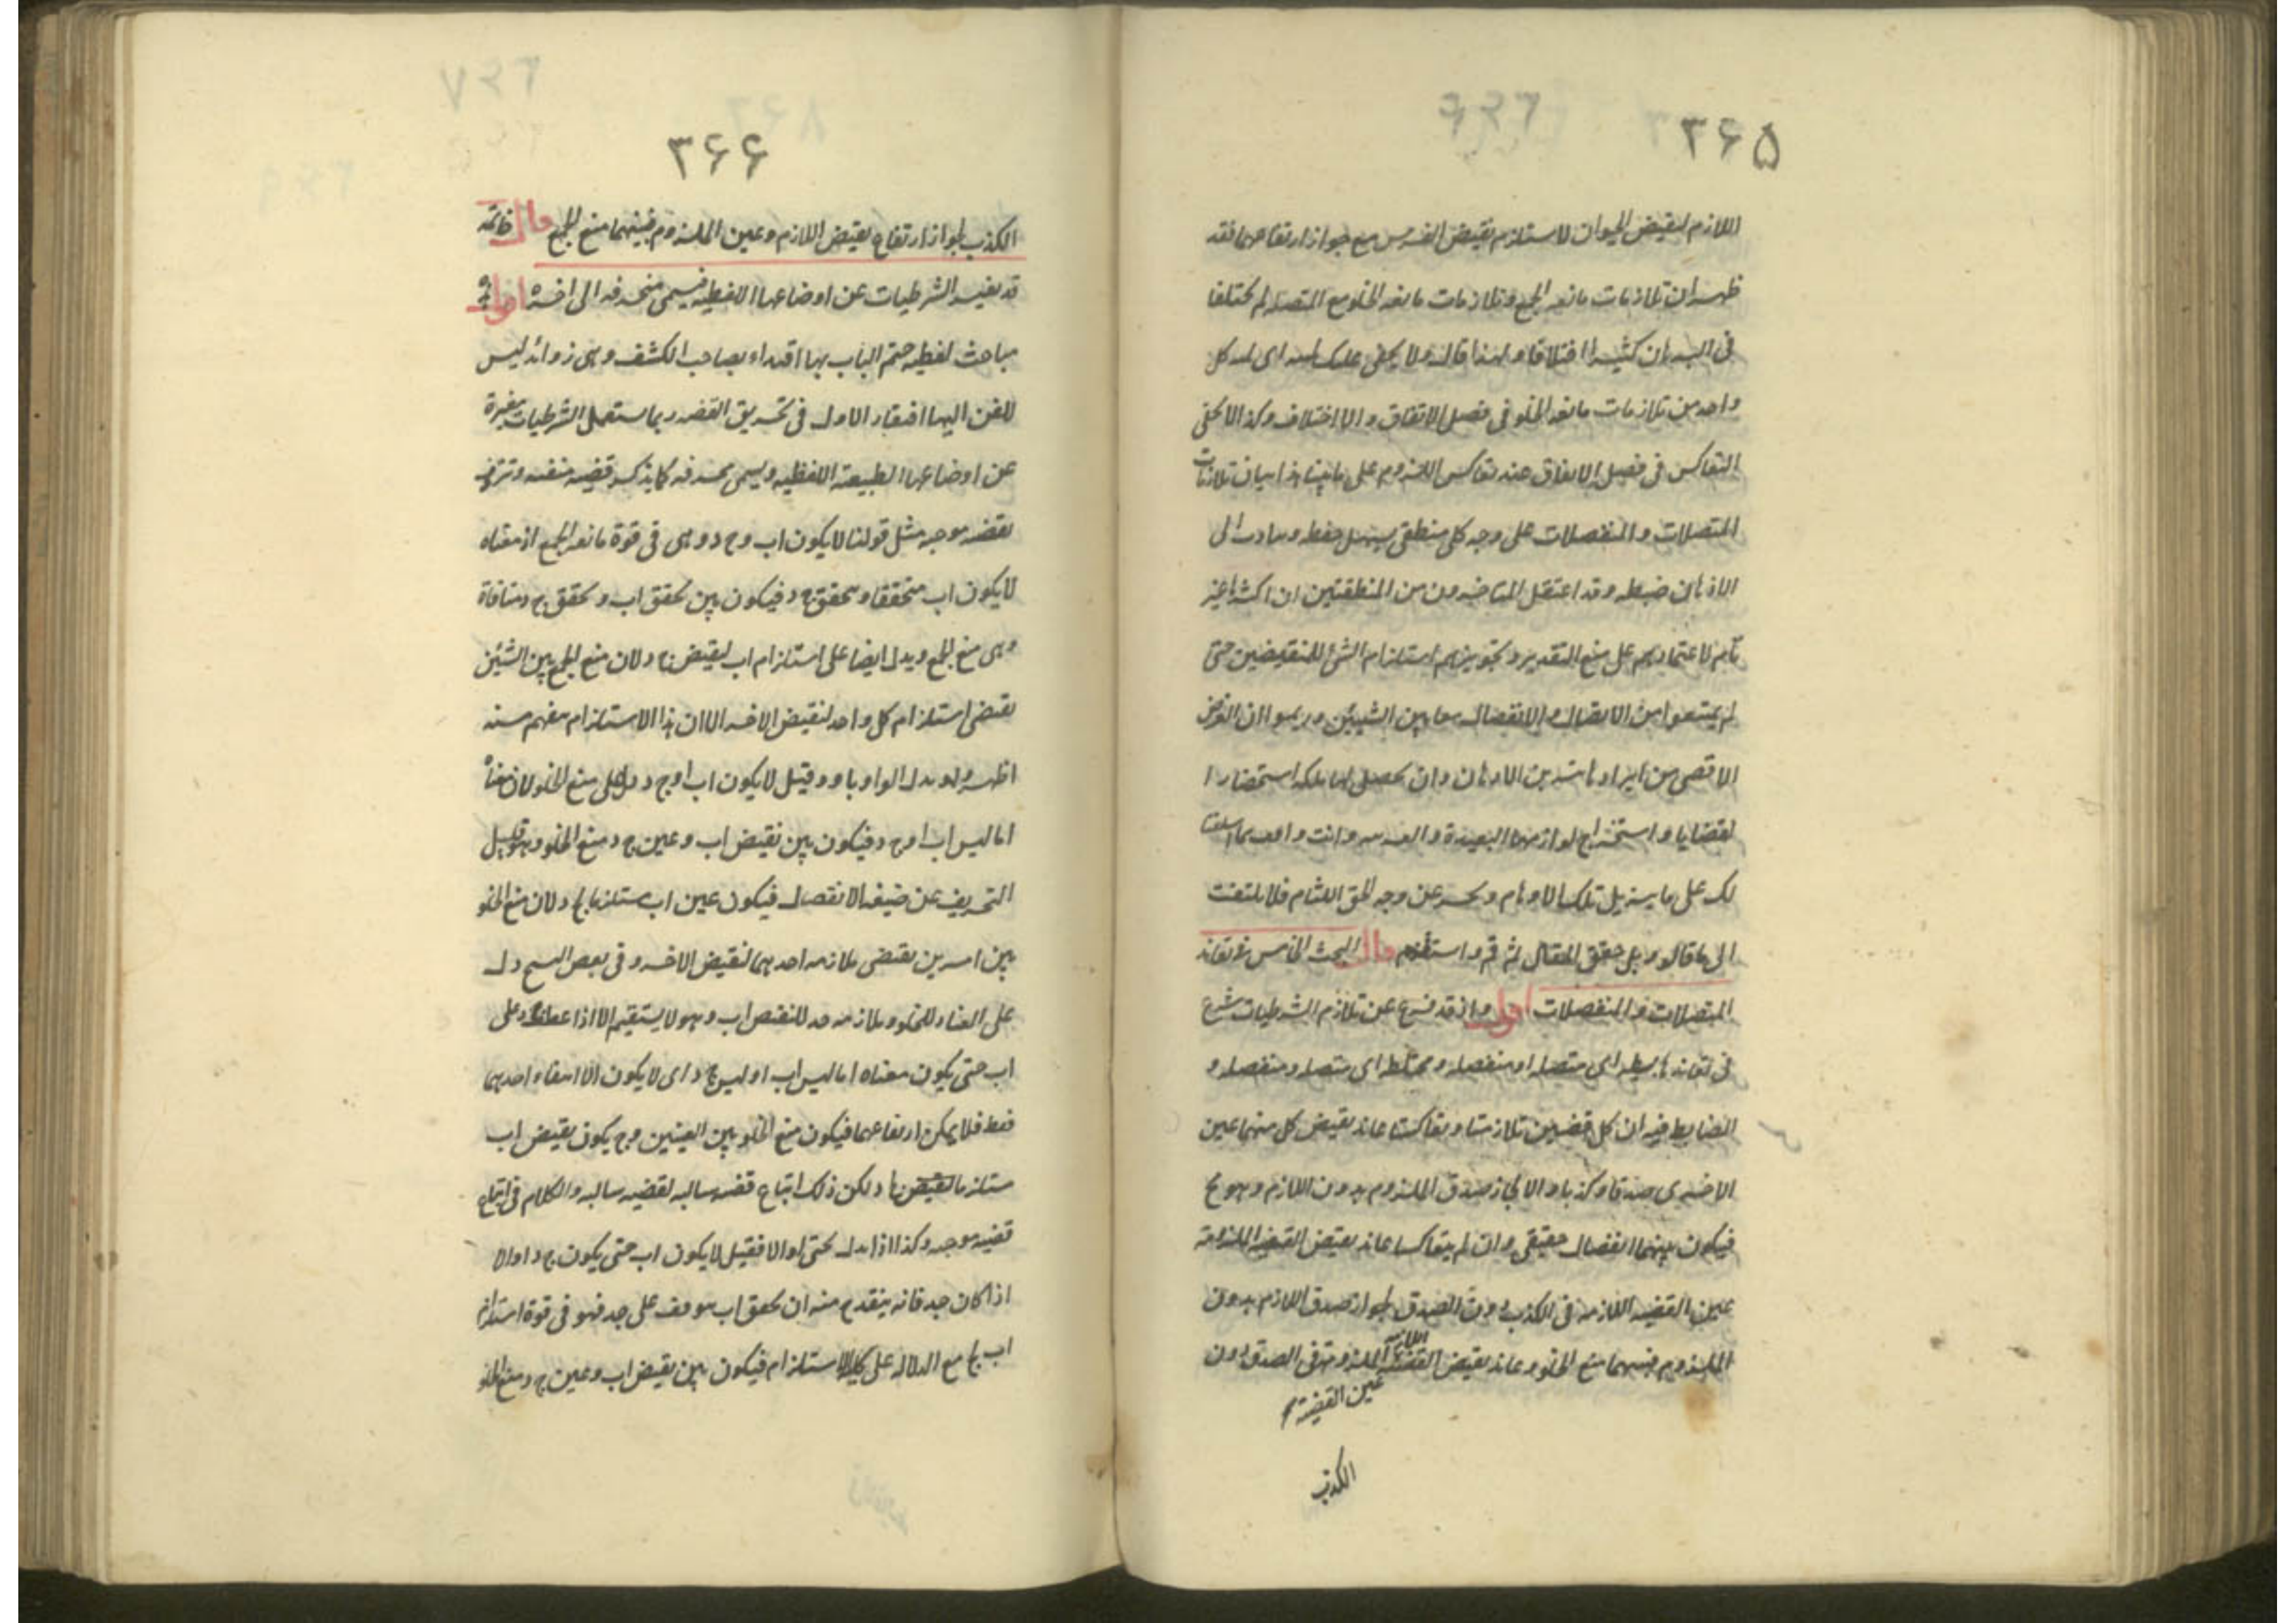 ۳۶۵
اللازم لنقيض الحيوان لاستلزم نقيض الفرس مع جواز ارتفاعهما فقد
ظهر ان تلازمات مانعه الجمع وتلازمات مانعه الخلو مع المتصله لم يختلفا
فى البيان كثيرا اختلافا ولهذا قال ولا يخفى عليك اى كل
واحد من تلازمات مانعه الخلو فى فصل الاتفاق والاختلاف وكذا لا يخفى
التعاكس فى فصل الاتفاق عند تعاكس اللزوم على ما بينا هذا بيان تلازمات
المتصلات والمنفصلات على وجه كلى منطقى يسهل حفظه الى
الاذهان ضبطه وقد اعتقل المتاخرون من المنطقيين ان اكثرها غير
تام لاعتمادهم على منع التقدير وتجويزهم استلزام الشئ للنقيضين حتى
لم يمتنعوا من الاتصال والانفصال معا بين الشيئين وربما ان الغرض
الاقصى من ايرادها الاذهان وان يحصل لها ملكه استحضار ا
لقضايا واستخراج لوازمها البعيدة وانت بما اسلفنا
لك على ما يزيل تلك الاوهام ويحسر عن وجه الحق اللثام فلا يلتفت
الى ما قالوه بل حقق المقال ثم قم واستقم قال البحث الخامس فى تعاند
المتصلات والمنفصلات اقول واذ قد فرغ عن تلازم الشرطيات شرع
فى تعاندها بسيطه اى متصله او منفصله ومختلطه اى متصله ومنفصله و
الضابط فيه ان كل قضيتين تلازمتا وتعاكستا عاند نقيض كل منهما عين
الاخرى صدقا وكذبا والا لجاز صدق الملزوم بدون اللازم وهو مح
فيكون بينهما انفصال حقيقى وان لم يتعاكسا عاند نقيض القضيه الملزومة
عين القضيه اللازمه فى الكذب دون الصدق لجواز صدق اللازم بدون
الملزوم فبينهما منع الخلو وعاند نقيض القضية اللازمة الملزومة فى الصدق دون
عين القضية
الكذب
۳۶۶
الكذب لجواز ارتفاع نقيض اللازم وعين الملزوم فبينهما منع الجمع قال خاتمه
قد يغير الشرطيات عن اوضاعها اللفظيه فيسمى منحرفه الى اخره اقول هذه
مباحث لفظيه ختم الباب بها اقتداء بصاحب الكشف وهى زوائد ليس
للفن اليها افتقار الاول فى تحريف القضيه ربما يستعمل الشرطيات مغيرة
عن اوضاعها الطبيعة اللفظيه ويسمى محرفه كما يذكر قضيه منفيه وتردف
بقضيه موجبه مثل قولنا لا يكون اب وج د وهى فى قوة مانعه الجمع اذ معناه
لا يكون اب متحققا ويتحقق ج د فيكون بين تحقق اب وتحقق ج د منافاة
وهى منع الجمع ويدل ايضا على استلزام اب لنقيض ج د لان منع الجمع بين الشيئين
يقتضى استلزام كل واحد لنقيض الاخر الا ان هذا الاستلزام يفهم منه
اظهر ولو بدل الواو باو وقيل لا يكون اب او ج د دل على منع الخلو لان معناه
اما ليس اب او ج د فيكون بين نقيض اب وعين ج د منع الخلو وهو قبل
التحريف عن صيغه الانفصال فيكون عين اب مستلزما لج د لان منع الخلو
بين امرين يقتضى ملازمه احدهما لنقيض الاخر وفى بعض النسخ دل
على العناد للخلو وملازمه جد للنقيض اب وهو لا يستقيم الا اذا عطف جد على
اب حتى يكون معناه اما ليس اب او ليس ج د اى لا يكون الا انتفاء احدهما
فقط فلا يمكن ارتفاعهما فيكون منع الخلو بين العينين وح يكون نقيض اب
مستلزما لنقيض ج د لكن ذلك اتباع قضيه سالبه لقضيه سالبه والكلام فى اتباع
قضيه موجبه وكذا اذا بدل بحتى او الا فقيل لا يكون اب حتى يكون ج د او الا
اذا كان جد فانه ينقدح منه ان تحقق اب موقوف على جد فهو فى قوة استلزام
اب لج مع الدلاله على كلية الاستلزام فيكون بين نقيض اب وعين ج د منع الخلو